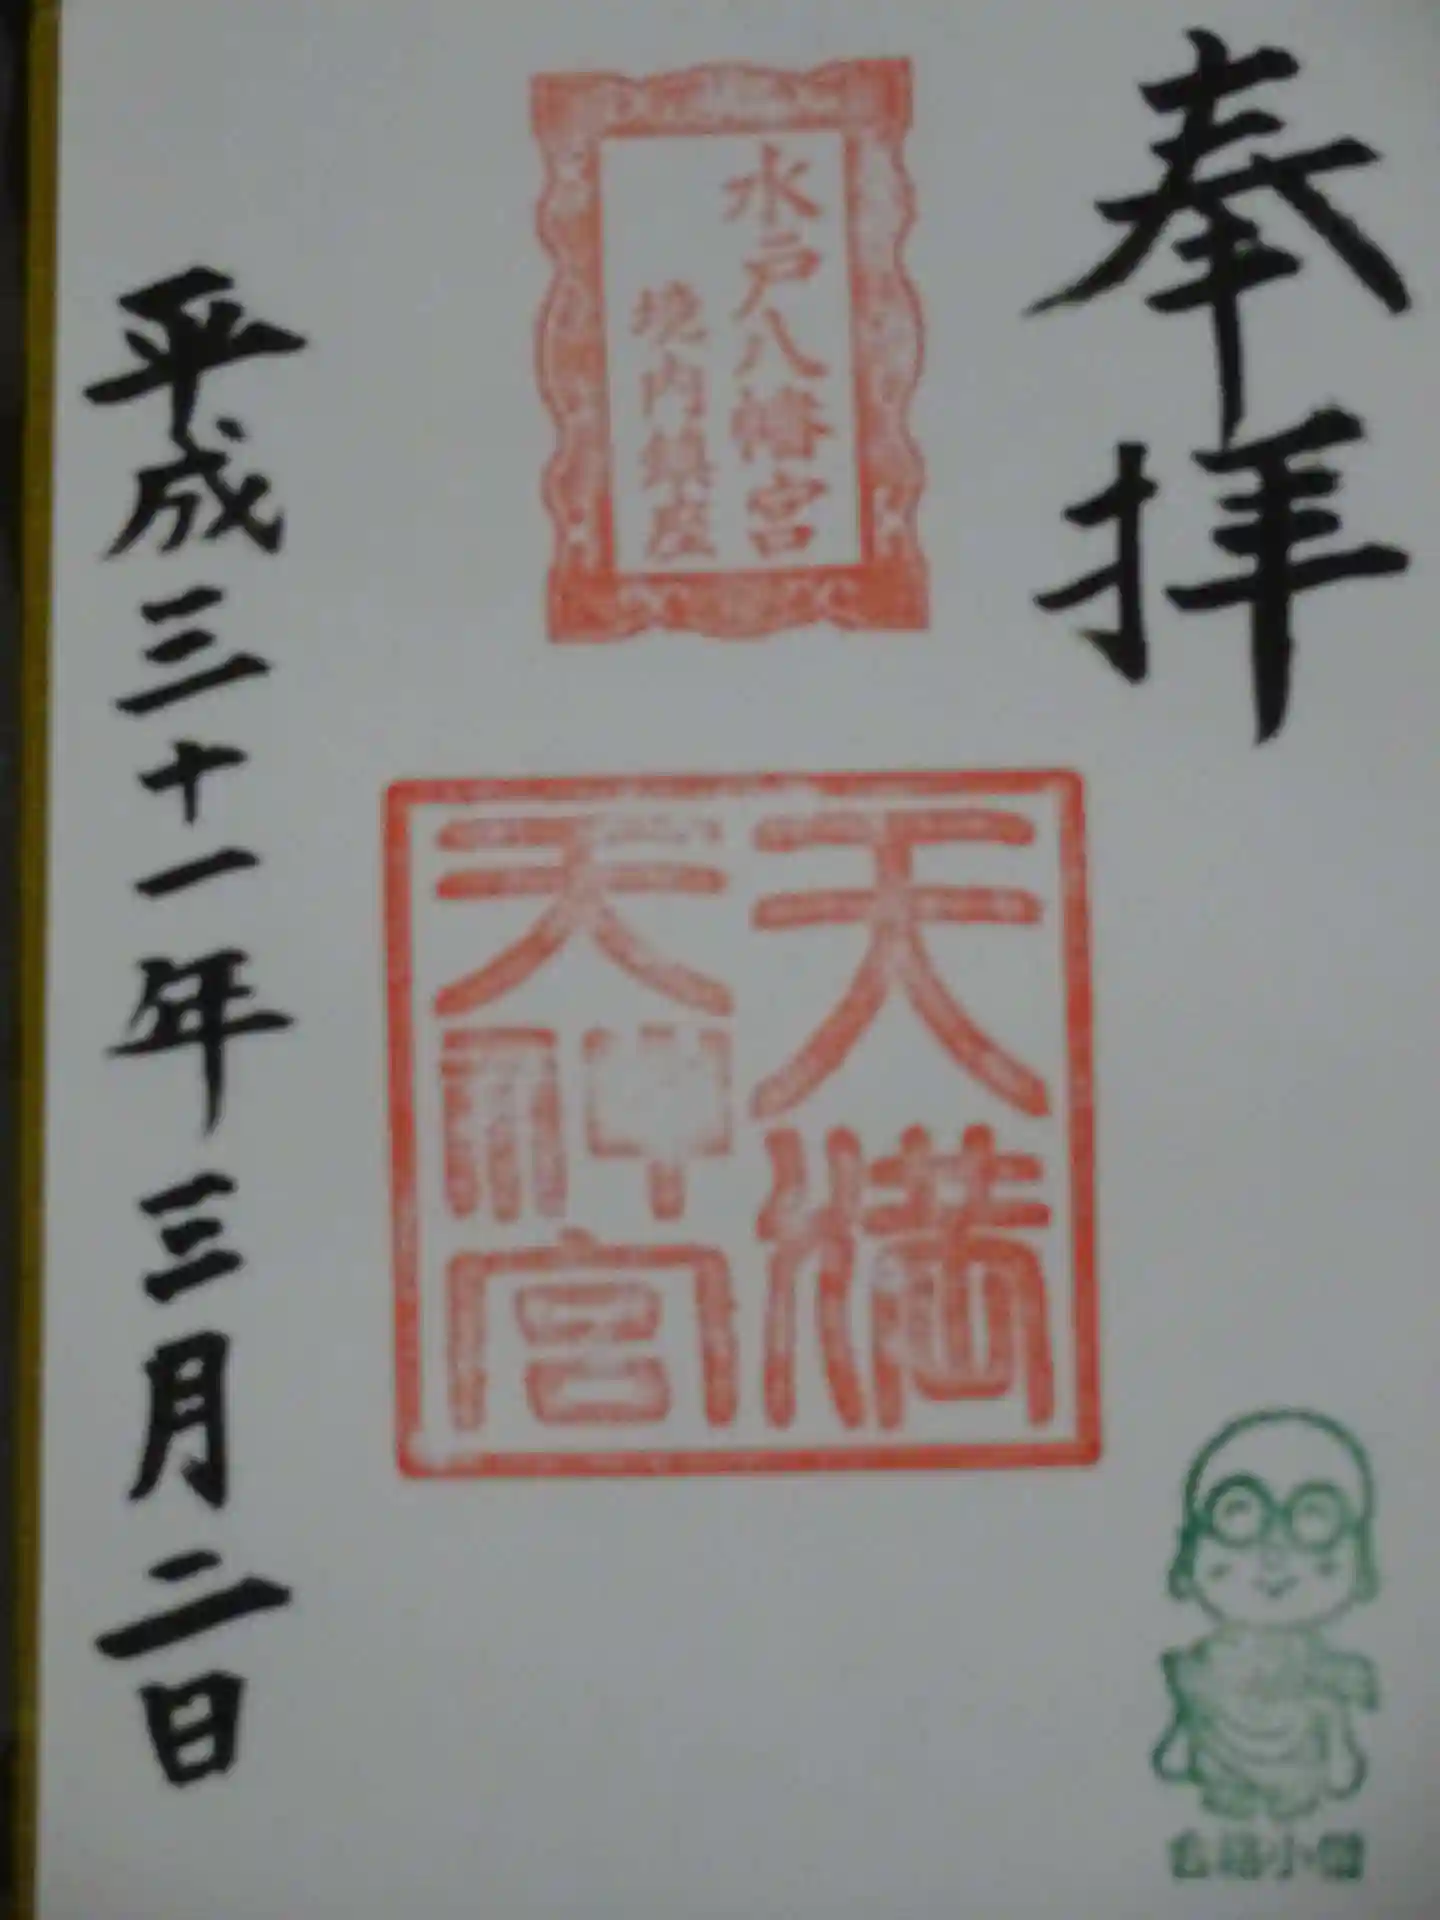 奉拝
水戸八幡宮
境内鎮座
天満
天神宮
平成三十一年三月二日